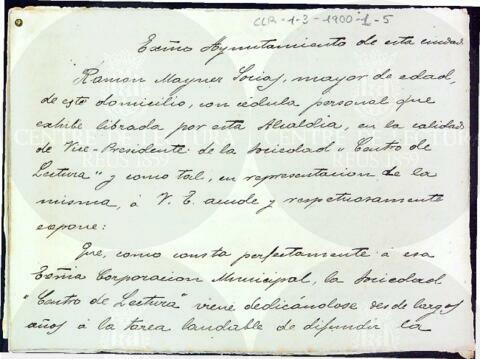 CLR-1-3-1900-1-5
Exmo Ayuntamiento de esta ciudad
Ramon Mayner Socias, mayor de edad,
de este domicilio, con cédula personal que
exhibe librada por esta Alcaldia, en la calidad
de Vice-Presidente de la Sociedad "Centro de
Lectura" y como tal, en representacion de la
misma, á V. E. acude y respetuosamente
expone:
Que, como consta perfectamente á esa
Exma Corporacion Municipal, la Sociedad
"Centro de Lectura" viene dedicándose desde largos
años á la tarea laudable de difundir la
CENTRE DE LECTURA
REUS 1859